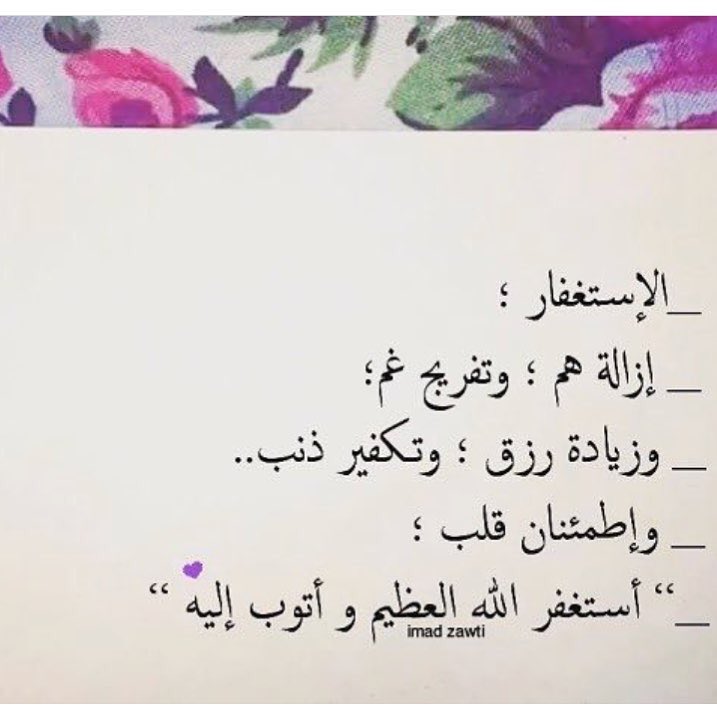 _الإستغفار ؛
_ إزالة هم ؛ وتفريج غم؛
_ وزيادة رزق ؛ وتكفير ذنب..
_ وإطمئنان قلب ؛
_“ أستغفر الله العظيم و أتوب إليه “
imad zawti